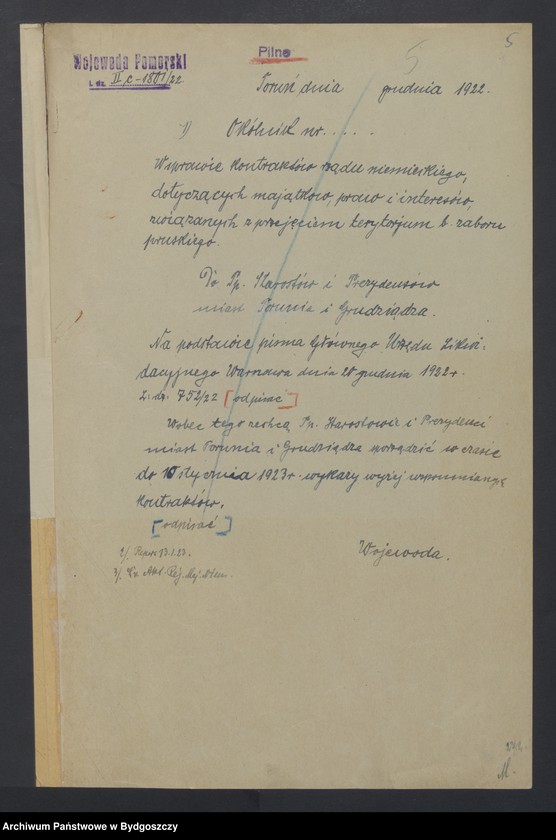 5
Pilne
5
Wojewoda Pomorski
l. dz. II, c-1801/22.
Toruń dnia grudnia 1922.
1) Okólnik nr. . . . .
W sprawie kontraktów rządu niemieckiego,
dotyczących majątków, praw i interesów,
związanych z przejęciem terytorjum b. zaboru
pruskiego.
Do Pp. Starostów i Prezydentów
miast Torunia i Grudziądza.
Na podstawie pisma Głównego Urzędu Likwi-
dacyjnego Warszawa dnia 20 grudnia 1922 r.
L. dz. 752/22 [odpisać]
Wobec tego zechcą Pp. Starostowie i Prezydenci
miast Torunia i Grudziądza sporządzić w czasie
do 10 stycznia 1923 r. wykazy wyżej wspomnianych
kontraktów.
[odpisać]
Wojewoda.
2/. 13.1.23.
3/.
M.